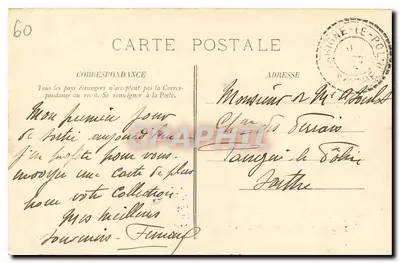 60
CARTE POSTALE
CORRESPONDANCE
Tous les pays étrangers n'acceptent pas la Correspondance au recto. Se renseigner à la Poste.
ADRESSE
Mon premier jour
de sortie aujourd'hui
j'en profite pour vous
envoyer une Carte de plus
pour votre Collection
Mes meilleurs
Souvenirs
Monsieur & Me
Chau des
le
Sarthe
CARTE POSTALE
CPAPHIL